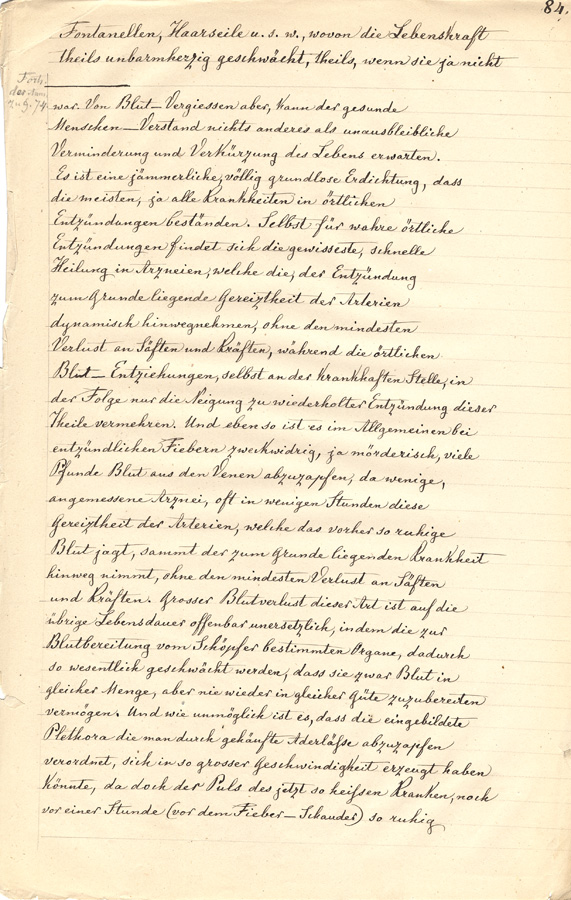 84.
Fontanellen, Haarseile u. s. w., wovon die Lebenskraft
theils unbarmherzig geschwächt, theils, wenn sie ja nicht
Forts.
der Anm.
zu S. 74.
war. Von Blut-Vergiessen aber, kann der gesunde
Menschen-Verstand nichts anderes als unausbleibliche
Verminderung und Verkürzung des Lebens erwarten.
Es ist eine jämmerliche, völlig grundlose Erdichtung, dass
die meisten, ja alle Krankheiten in örtlichen
Entzündungen beständen. Selbst für wahre örtliche
Entzündungen findet sich die gewisseste, schnelle
Heilung in Arzneien, welche die, der Entzündung
zum Grunde liegende Gereiztheit der Arterien
dynamisch hinwegnehmen, ohne den mindesten
Verlust an Säften und Kräften, während die örtlichen
Blut-Entziehungen, selbst an der krankhaften Stelle, in
der Folge nur die Neigung zu wiederholter Entzündung dieser
Theile vermehren. Und eben so ist es im Allgemeinen bei
entzündlichen Fiebern zweckwidrig, ja mörderisch, viele
Pfunde Blut aus den Venen abzuzapfen, da wenige,
angemessene Arznei, oft in wenigen Stunden diese
Gereiztheit der Arterien, welche das vorher so ruhige
Blut jagt, sammt der zum Grunde liegenden Krankheit
hinweg nimmt, ohne den mindesten Verlust an Säften
und Kräften. Grosser Blutverlust dieser Art ist auf die
übrige Lebensdauer offenbar unersetzlich, indem die zur
Blutbereitung vom Schöpfer bestimmten Organe, dadurch
so wesentlich geschwächt werden, dass sie zwar Blut in
gleicher Menge, aber nie wieder in gleicher Güte zuzubereiten
vermögen. Und wie unmöglich ist es, dass die eingebildete
Plethora die man durch gehäufte Aderläfse abzuzapfen
verordnet, sich in so grosser Geschwindigkeit erzeugt haben
könnte, da doch der Puls des jetzt so heifsen Kranken, noch
vor einer Stunde (vor dem Fieber-Schauder) so ruhig